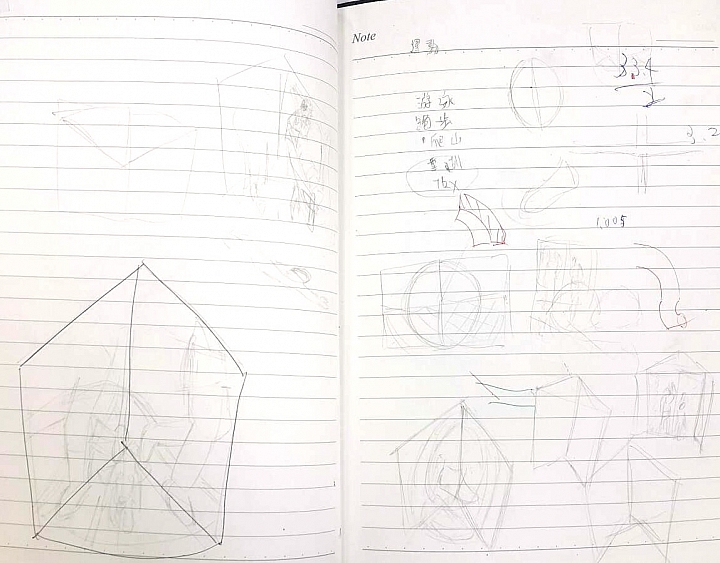 Note
運動
游泳
跑步
爬山
重訓
TRX
33.4
2
3.2
1.005